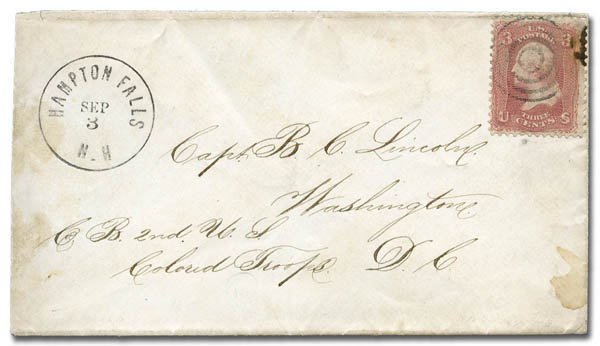 HAMPTON FALLS
SEP
3
N.H
3 U.S. 3
POSTAGE
THREE
U CENTS S
Capt. B. C. Lincoln.
Washington
Co B. 2nd. U. S
Colored Troops. D. C.